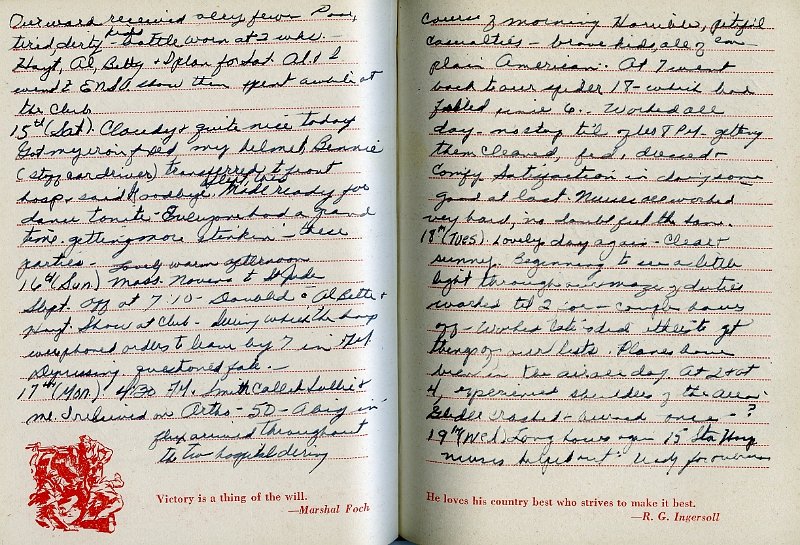 Our ward received a very few. Poor,
tired, dirty kids battle worn at 2 wks. -
Hoyt, Al, Betty & I plan for Sat. Al & I
went to ENSA show then spent awhile at
the Club
15th (Sat). Cloudy & quite nice today
Got my iron fixed, my helmet, Bennie
(staff car driver) transferred to front
hosp & said Goodbye. Made ready for
dance tonite - Everyone had a grand
time. getting more these
parties -
16th (Sun.) Lovely warm afternoon Mass. Novena to St Jude
Slept. Off at 7:10 - Donald & Al Betty &
Hoyt. Show at Club - During which the hosp
was phoned orders to leave by 7 in
Depressing questioned fate. -
17th (Mon.) 4:30 Smith called Sallie &
me. I relieved on Ortho - 50 - A big in-
flux arrived throughout
the hospital during
Victory is a thing of the will.
—Marshal Foch
course of morning Horrible, pitiful
casualties - brave kids, all of 'em
plain American. At 7 went
back to our 18 - which had
since 6. Worked all
day - no stop til after 8 PM - getting
them cleared, fed, dressed &
comfy Satisfaction in doing some
good at last. Nurses all worked
very hard, no doubt feel the same.
18th (Tues). Lovely day again - Clear &
sunny. Beginning to see a little
light through our maze of duties
worked til 2 or - couple hours
off - Worked late & did to get
things of our lists. Planes have
been in the air all day. At 2
4, experienced shudders of the area.
crashed - once - ?
19th (Wed.) Long hours again 15th Sta Hosp
nurses helped out. Ready for
He loves his country best who strives to make it best.
—R. G. Ingersoll